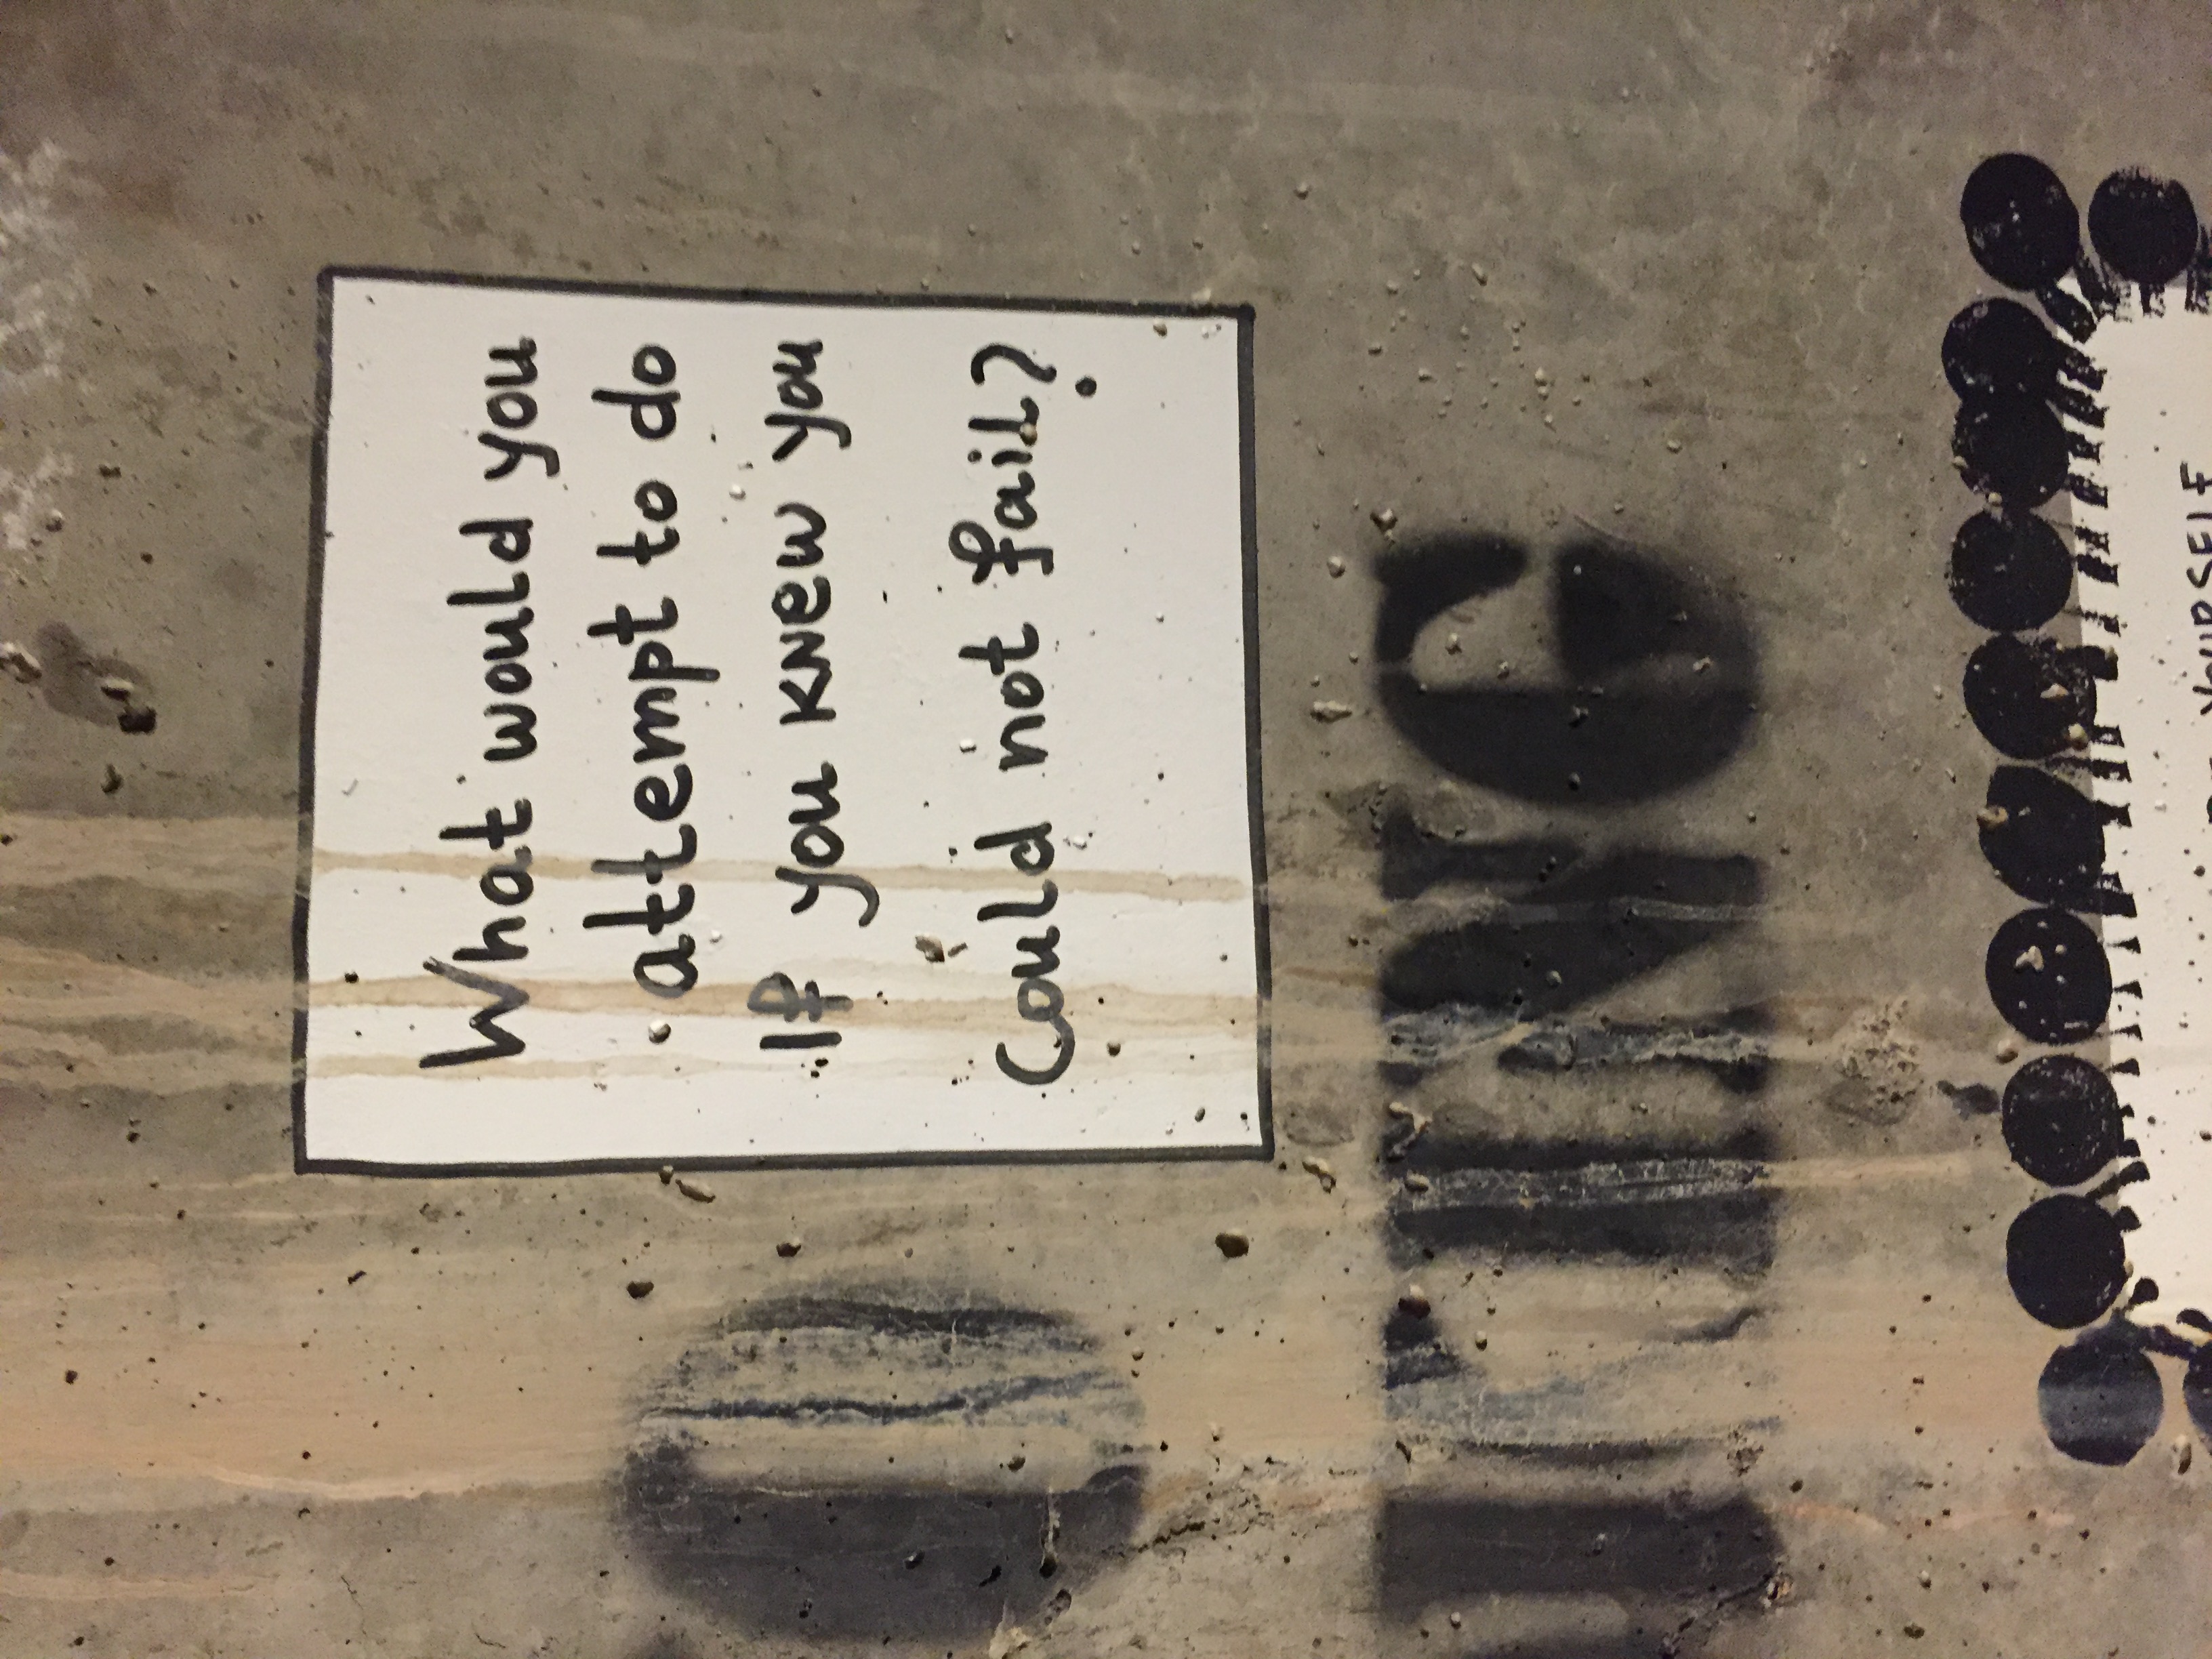 What would you
attempt to do
If you knew you
Could not fail?
YOURSELF